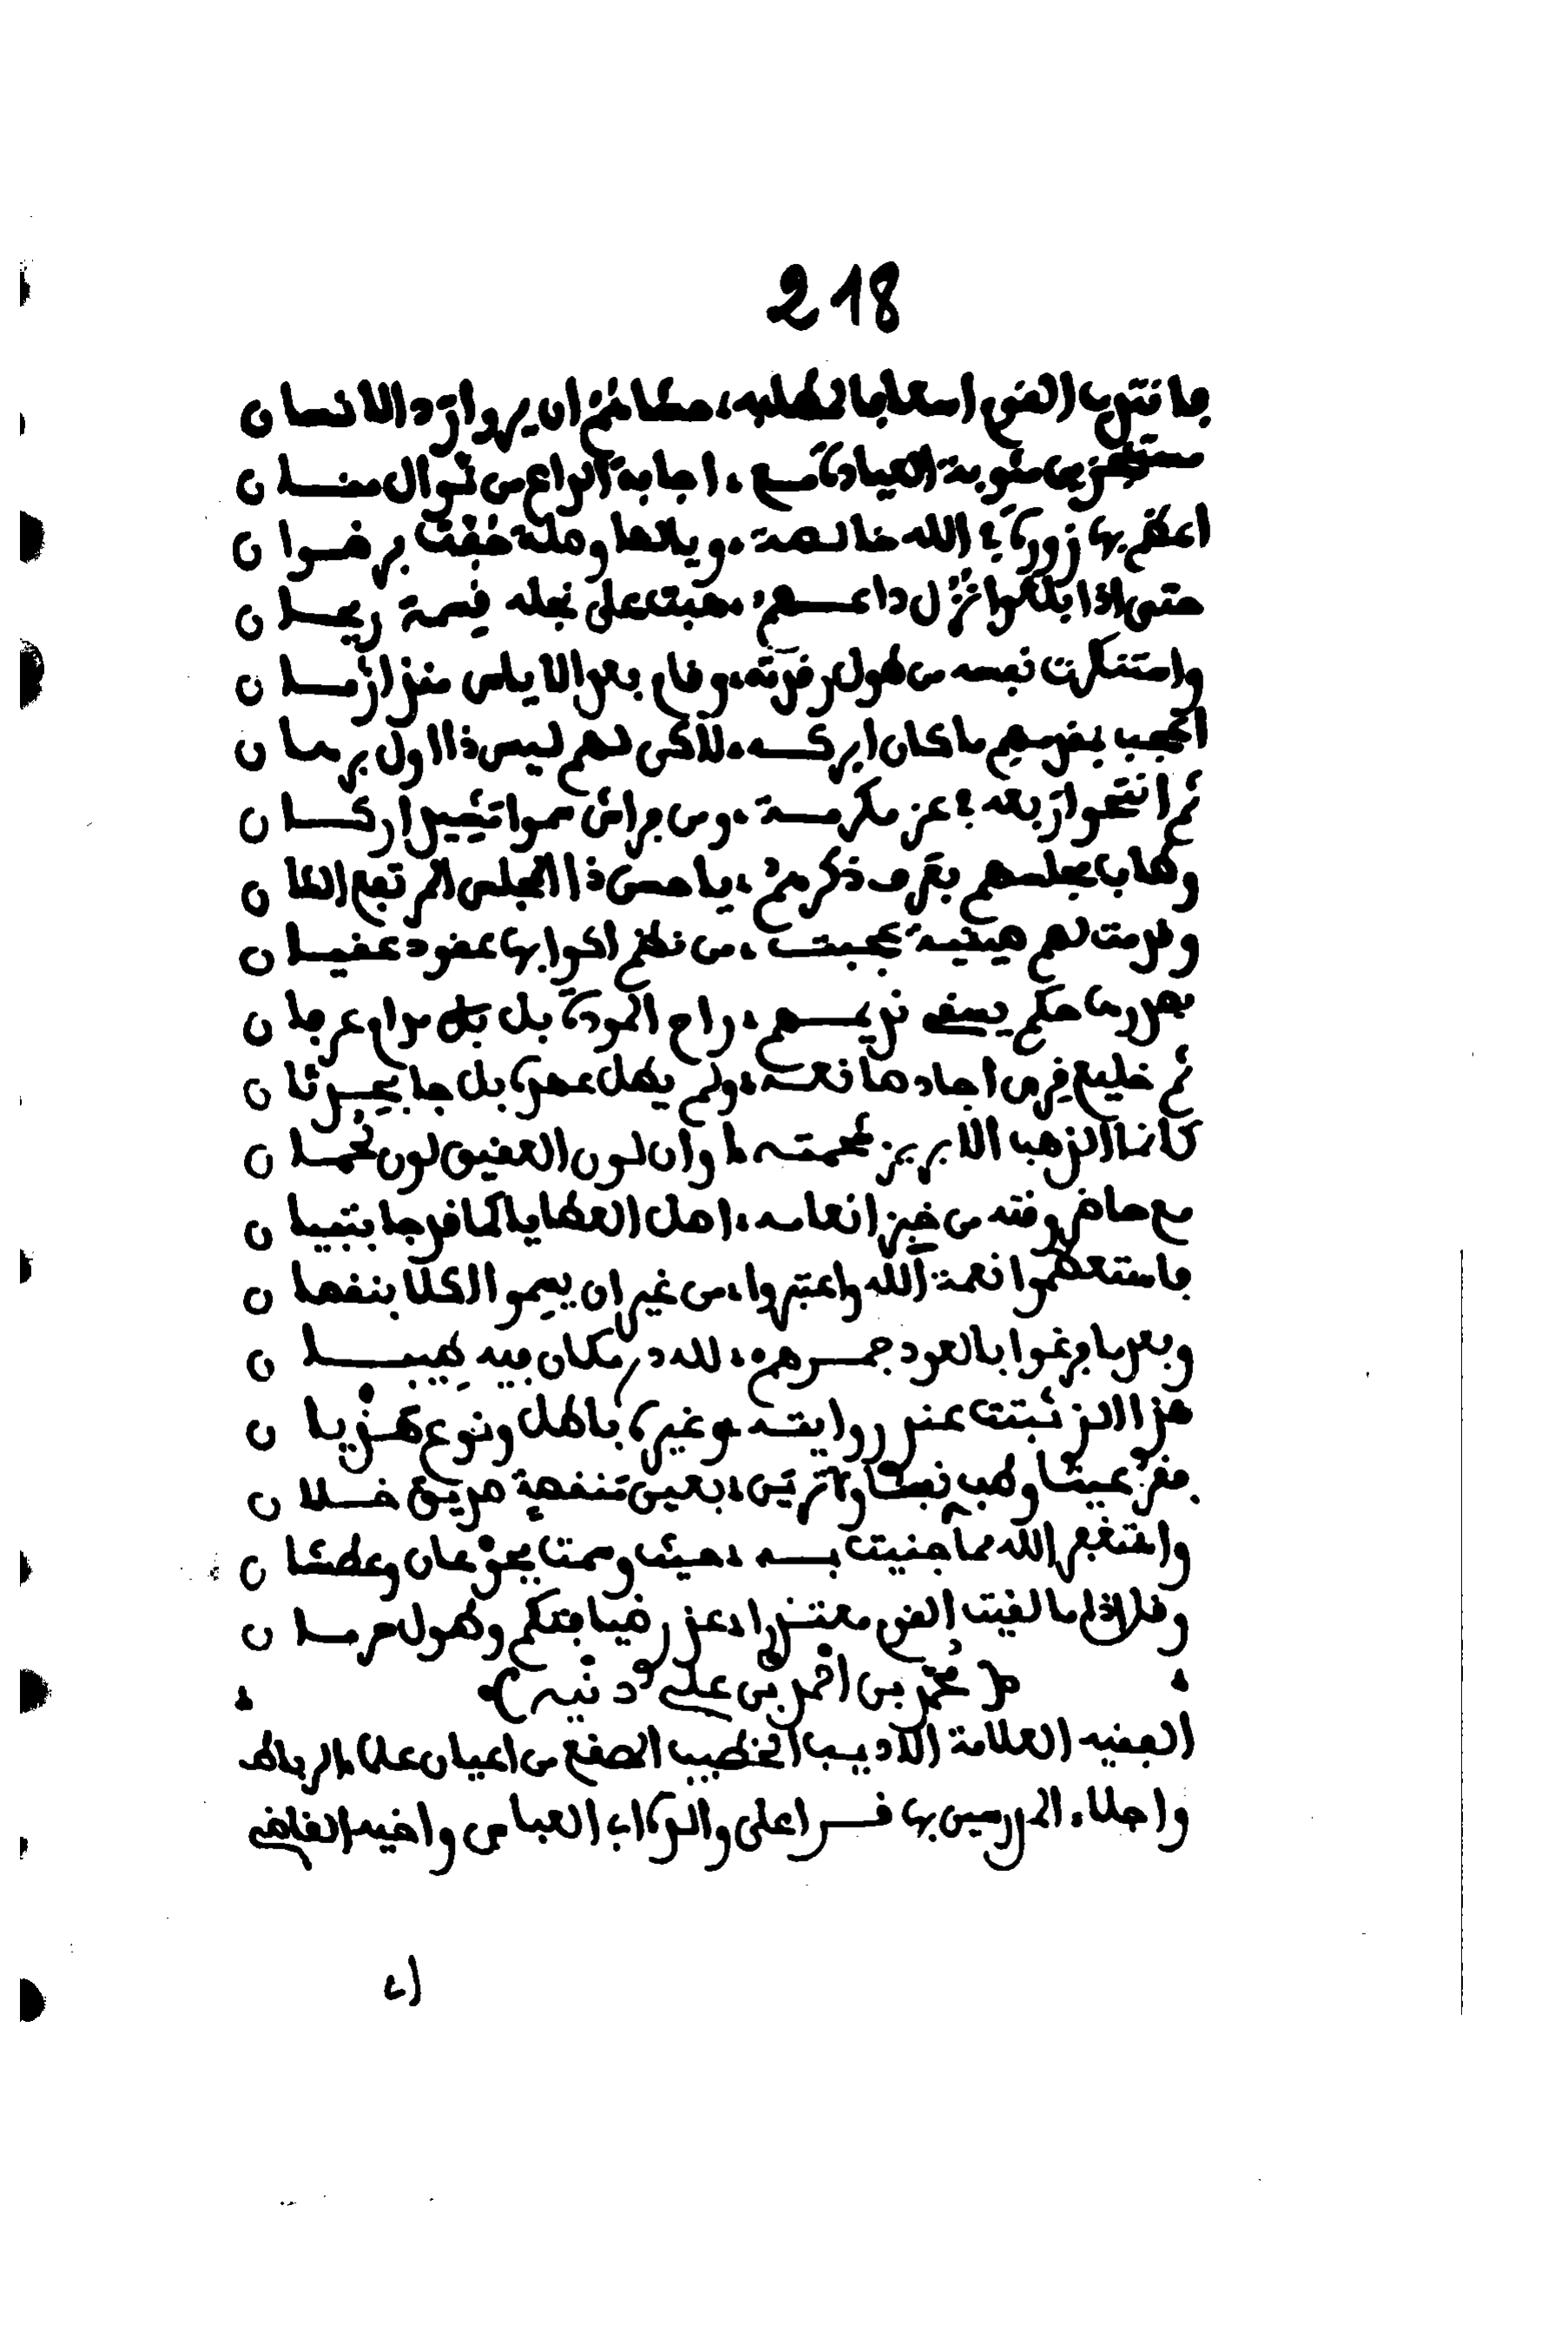 218
فانتدب الفتى اسعافا لمطلبه، مكانهم ان يهوازرد الانسان
من مثوبة العيادة مع، اجابة الداع من نوال منان
اعظم بها زورة في الله خالصة، ويالها وصلة خفت برضوان
حتى اذا بلغوا منزل داعيهم، هبت على نجله نسمة ريحان
واستنكرت نفسه من طول رقدته، وقام بعد الاياس منذ ازمان
اعجب بنفسهم ما كان ابركه، لاكن لهم ليس ذا اول برهان
ثم انتحوا ربعه في عز مكرمة، ومن مراش سموا تثييل اركان
وطاب مجلسهم بعرف ذكرهم، يا حسن ذا المجلس المرتفع الشان
وقدمت لهم صينية عجبت، من نظم اكوابها عقود عقيان
بصدرها حكم يسقي نديمهم، راح المودة بل بل مدام عرفان
ثم خليع فدى اجاد صانعه، ولم يطل عصره بل جا بحدثان
كانما الذهب الابريز طحمته او ان لون العقيق لون لحمان
مع حاضر وقته من خبز انعامه، اهل العطايا كما قد جا بتبيان
فاستعظموا نعمة الله واعتبروا، من غير ان يسموا الاكلا بنقصان
وبعد ما فرغوا بالعود جمرهم، لله در مكان فيه طيبان
هذا الذي ثبتت عندي روايته وغيره باطل ونوع هذيان
فقر عينا وطب نفسا ولا ترين، بعين تنقصة صديق خلان
واستغفر الله مما جنيت به، حيث وسمت بجوعان وعطشان
وقلاذا ما لقيت الفتى معتذرا، عذر ضيافتكم وطول حرمان
{محمد بن احمد بن علي دنيه}
الفقيه العلامة الاديب الخطيب المصقع من اعيان علماء الرباط
واجلاء المدرسين بها قرا على والده اب العباس واخيه القاضي